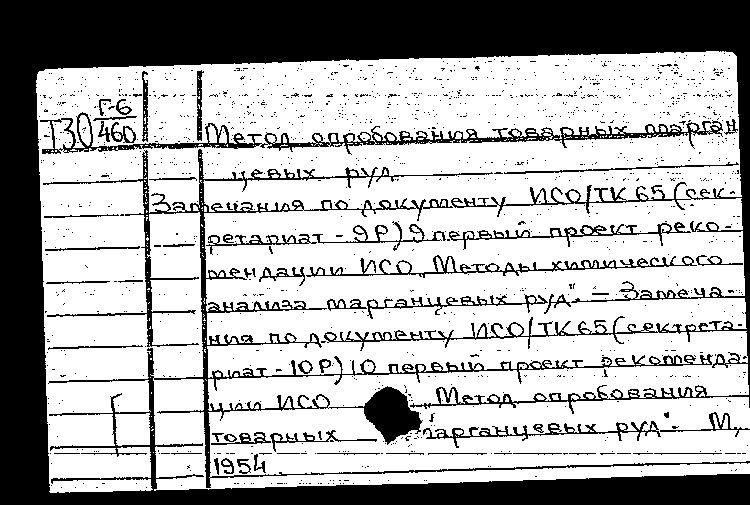 Г-6
Т30 460
Метод опробования товарных марган
цевых руд.
Замечания по документу ИСО/ТК 65 (сек-
ретариат - 9Р) 9 первый проект реко-
мендации ИСО „Методы химического
анализа марганцевых руд". — Замеча-
ния по документу ИСО/ТК 65 (сектрета-
риат - 10Р) 10 первый проект рекоменда-
ции ИСО „Метод опробования
товарных марганцевых руд". М.,
1954.